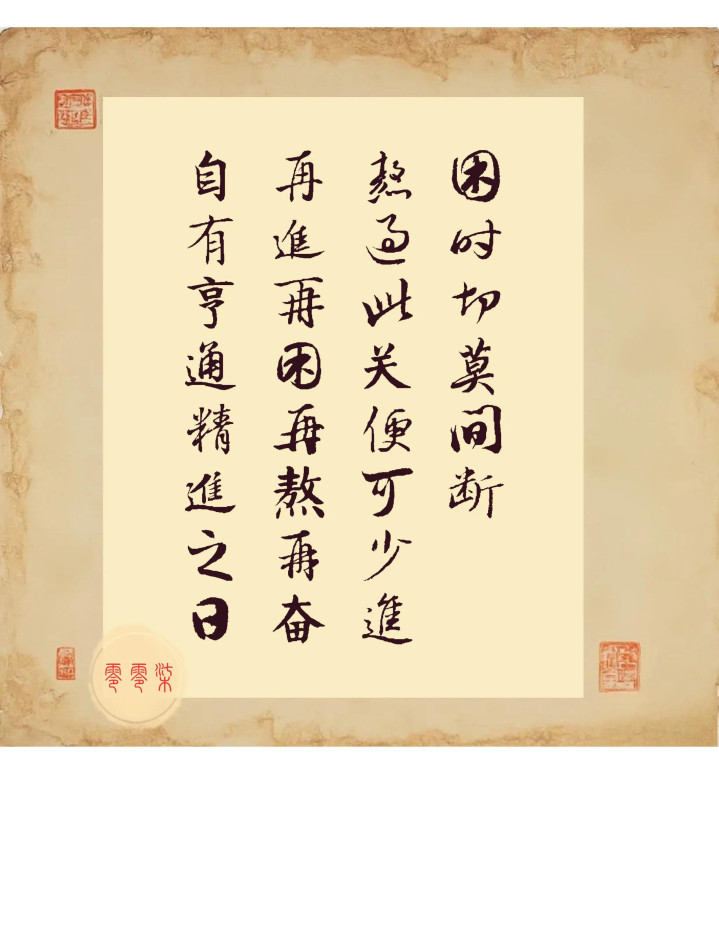 困时切莫间断
熬过此关便可少進
再進再困再熬再奋
自有亨通精進之日
零零柒